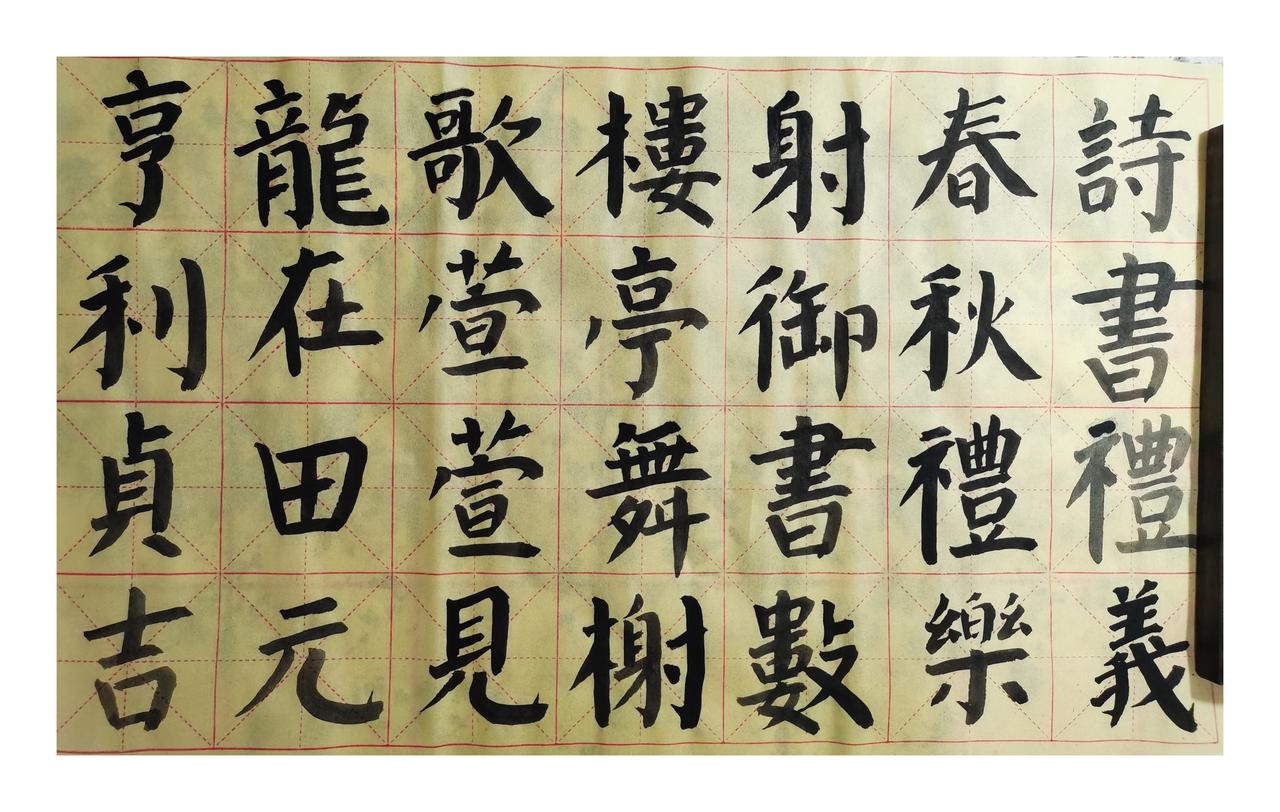 詩書禮義
春秋禮樂
射御書數
樓亭舞榭
歌萱萱見
龍在田元
亨利貞吉